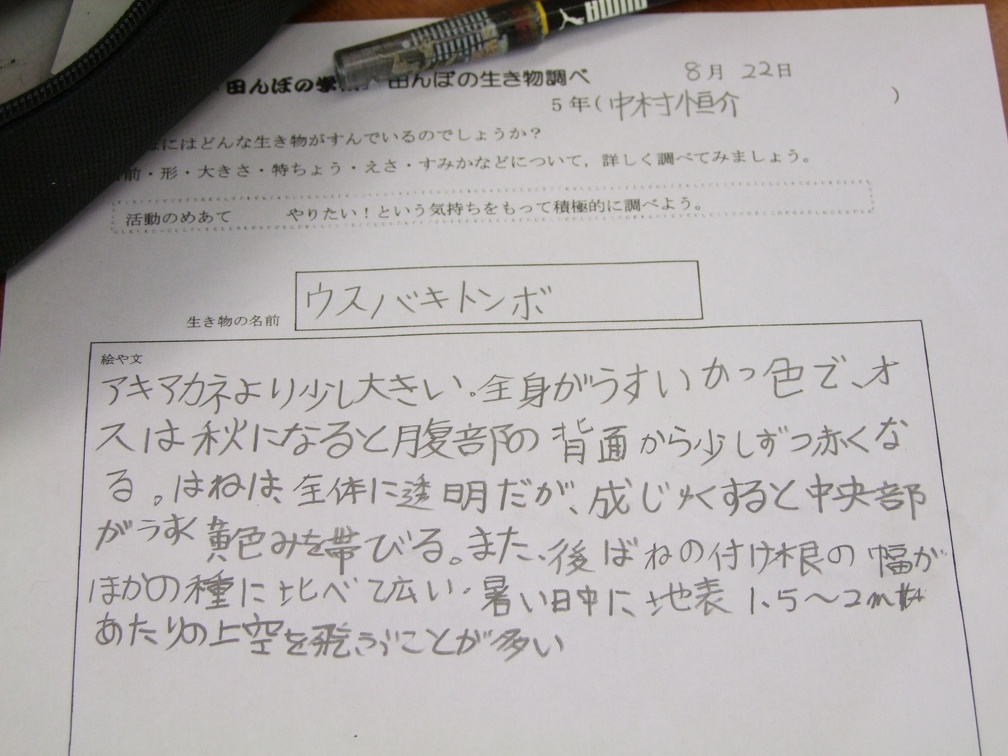 田んぼの学 田んぼの生き物調べ
8月 22日
5年(中村恒介 )
にはどんな生き物がすんでいるのでしょうか?
前・形・大きさ・特ちょう・えさ・すみかなどについて,詳しく調べてみましょう。
活動のめあて やりたい!という気持ちをもって積極的に調べよう。
生き物の名前 ウスバキトンボ
絵や文
アキアカネより少し大きい。全身がうすいかっ色で、オ
スは秋になると腹部の背面から少しずつ赤くな
る。はねは、全体に透明だが、成じゅくすると中央部
がうすく黄色みを帯びる。また、後ばねの付け根の幅が
ほかの種に比べて広い。暑い日中に、地表1.5〜2m
あたりの上空を飛ぶことが多い